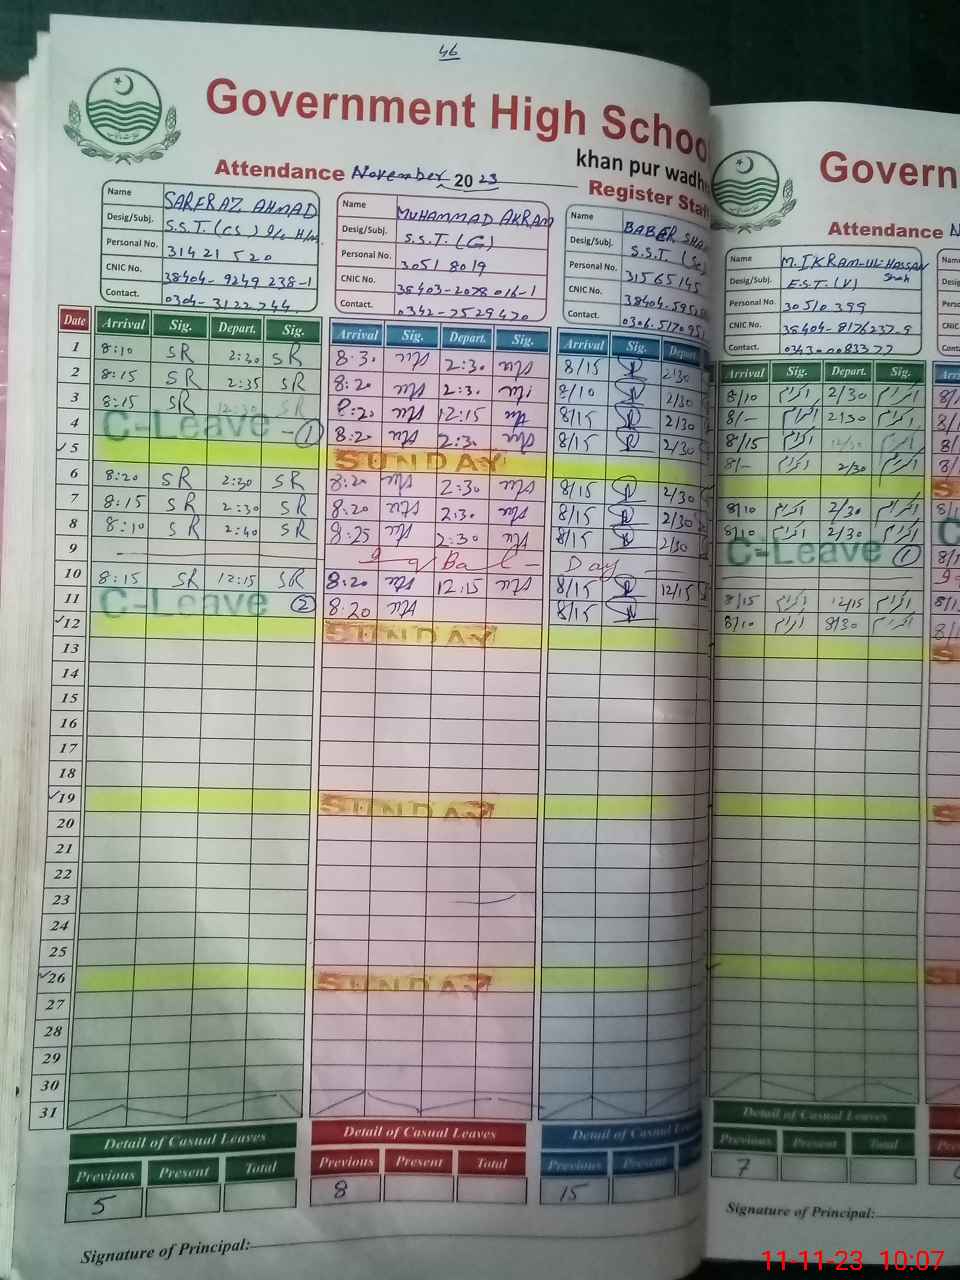 46
Government High Schoo
khan pur wadh
Attendance November 2023
Register Staf
Name SARFRAZ AHMAD
Desig/Subj. S.S.T (CS) I/C H/M
Personal No. 31421520
CNIC No. 38404-9249238-1
Contact. 0304-3122744
Name MUHAMMAD AKRAM
Desig/Subj. S.S.T. (G)
Personal No. 30518019
CNIC No. 38403-2078016-1
Contact. 0342-7529470
Name BABER SHA
Desig/Subj. S.S.T. (Sc)
Personal No. 31565145
CNIC No. 38404-5952
Contact. 0306-5170951
Date Arrival Sig. Depart. Sig. Arrival Sig. Depart. Sig. Arrival Sig. Depart
1 8:10 SR 2:30 SR 8:30 2:30 8/15 2/30
2 8:15 SR 2:35 SR 8:20 2:30 8/10 2/30
3 8:15 SR 12:30 SR 8:20 12:15 8/15 2/30
4 C-Leave - 1 8:20 2:30 8/15 2/30
5 SUNDAY
6 8:20 SR 2:30 SR 8:20 2:30 8/15 2/30
7 8:15 SR 2:30 SR 8:20 2:30 8/15 2/30
8 8:10 SR 2:40 SR 8:25 2:30 8/15 2/30
9 Iqbal Day
10 8:15 SR 12:15 SR 8:20 12:15 8/15 12/15
11 C-Leave 2 8:20 8/15
12 SUNDAY
13
14
15
16
17
18
19 SUNDAY
20
21
22
23
24
25
26 SUNDAY
27
28
29
30
31
Detail of Casual Leaves Detail of Casual Leaves Detail of Casual Leaves
Previous Present Total Previous Present Total Previous Present
5 8 15
Signature of Principal:
Govern
Attendance N
Name M. IKRAM-UL-HASSAN Shah
Desig/Subj. E.S.T (V)
Personal No. 30510399
CNIC No. 38404-8176237-9
Contact. 0343-0083377
Arrival Sig. Depart. Sig.
8/10 اکرام 2/30 اکرام
8/- اکرام 2/30 اکرام
8/15 اکرام 12/ اکرام
8/- اکرام 2/30 اکرام
8/10 اکرام 2/30 اکرام
8/10 اکرام 2/30 اکرام
C-Leave 1
8/15 اکرام 12/15 اکرام
8/10 اکرام 8/30 اکرام
Detail of Casual Leaves
Previous Present Total
7
Signature of Principal:
11-11-23 10:07